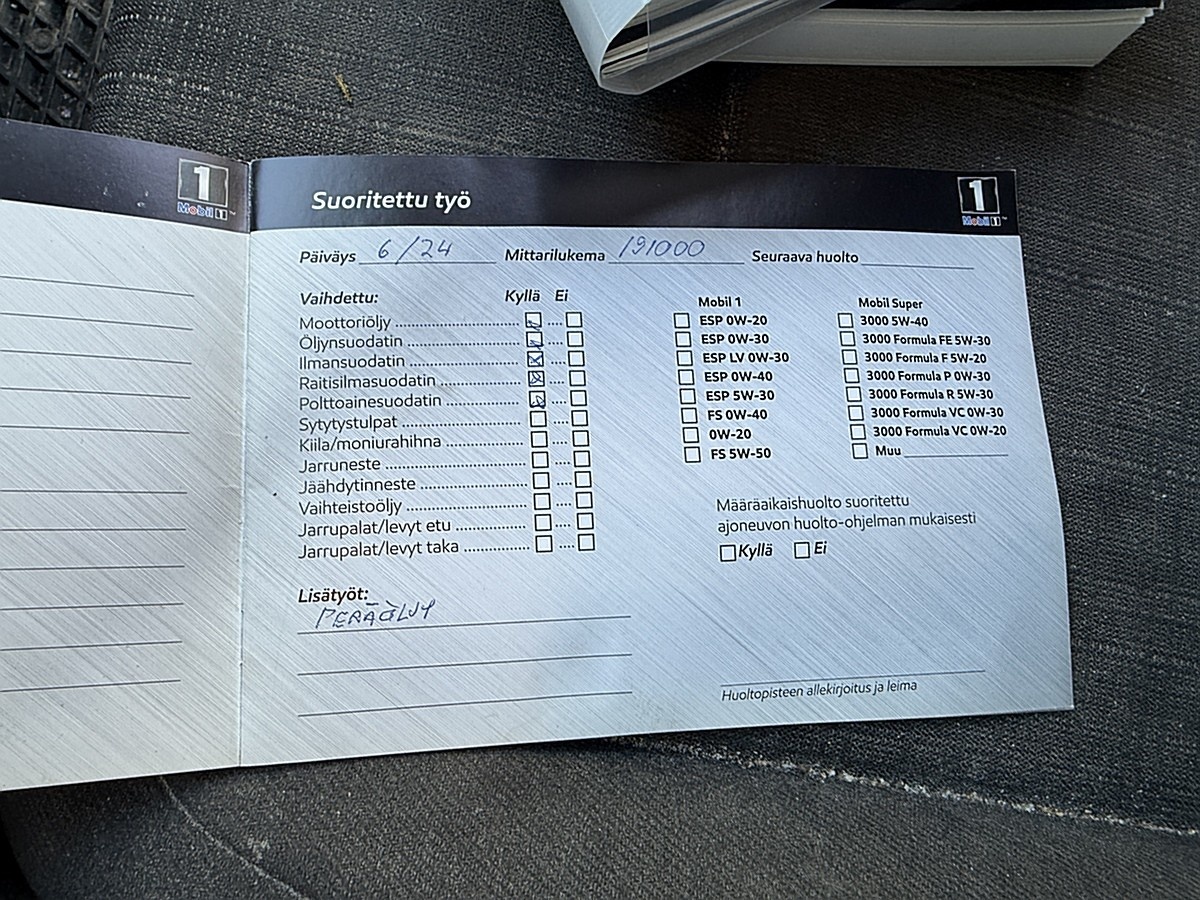 1
Mobil 1™
Suoritettu työ
1
Mobil 1™
Päiväys 6/24 Mittarilukema 191000 Seuraava huolto
Vaihdettu: Kyllä Ei
Moottoriöljy
Öljynsuodatin
Ilmansuodatin
Raitisilmasuodatin
Polttoainesuodatin
Sytytystulpat
Kiila/moniurahihna
Jarruneste
Jäähdytinneste
Vaihteistoöljy
Jarrupalat/levyt etu
Jarrupalat/levyt taka
Mobil 1
ESP 0W-20
ESP 0W-30
ESP LV 0W-30
ESP 0W-40
ESP 5W-30
FS 0W-40
0W-20
FS 5W-50
Mobil Super
3000 5W-40
3000 Formula FE 5W-30
3000 Formula F 5W-20
3000 Formula P 0W-30
3000 Formula R 5W-30
3000 Formula VC 0W-30
3000 Formula VC 0W-20
Muu
Määräaikaishuolto suoritettu
ajoneuvon huolto-ohjelman mukaisesti
Kyllä Ei
Lisätyöt:
PERÄÖLJY
Huoltopisteen allekirjoitus ja leima